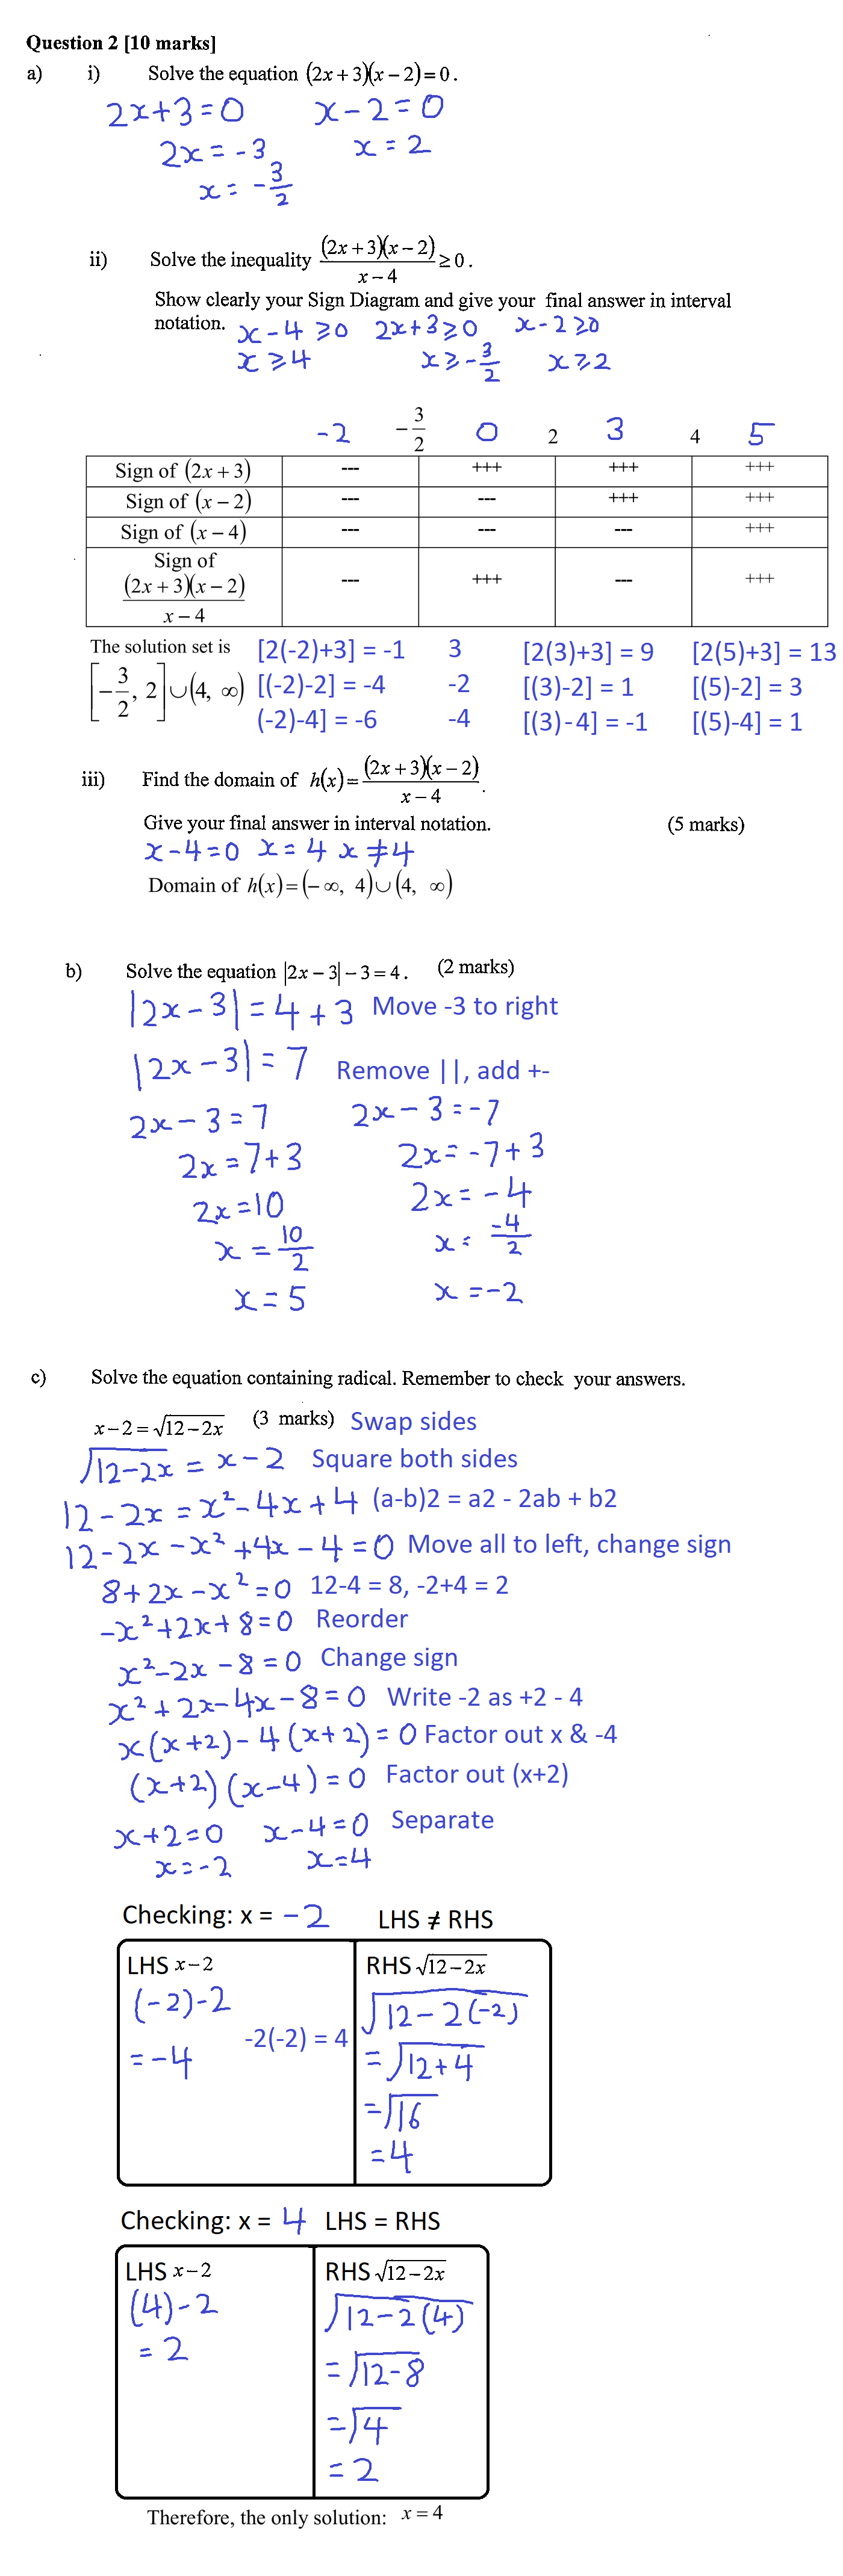 Question 2 [10 marks]
a) i) Solve the equation (2x+3)(x−2)=0.
2x+3=0 x−2=0
2x=-3 x=2
x=-3/2
ii) Solve the inequality (2x+3)(x−2)/x−4 ≥0.
Show clearly your Sign Diagram and give your final answer in interval
notation. x−4⩾0 2x+3⩾0 x-2⩾0
x⩾4 x⩾-3/2 x⩾2
-2 −3/2 0 2 3 4 5
Sign of (2x+3) --- +++ +++ +++
Sign of (x−2) --- --- +++ +++
Sign of (x−4) --- --- --- +++
Sign of
(2x+3)(x−2)/x−4 --- +++ --- +++
The solution set is [2(-2)+3] = -1 3 [2(3)+3] = 9 [2(5)+3] = 13
[−3/2, 2]∪(4, ∞) [(-2)-2] = -4 -2 [(3)-2] = 1 [(5)-2] = 3
(-2)-4] = -6 -4 [(3)-4] = -1 [(5)-4] = 1
iii) Find the domain of h(x)=(2x+3)(x−2)/x−4.
Give your final answer in interval notation. (5 marks)
x-4=0 x=4 x≠4
Domain of h(x)=(−∞, 4)∪(4, ∞)
b) Solve the equation |2x−3|−3=4. (2 marks)
|2x−3|=4+3 Move -3 to right
|2x−3|=7 Remove ||, add +-
2x−3=7 2x−3=-7
2x=7+3 2x=-7+3
2x=10 2x=-4
x=10/2 x=-4/2
x=5 x=-2
c) Solve the equation containing radical. Remember to check your answers.
x−2=√12−2x (3 marks) Swap sides
√12−2x = x−2 Square both sides
12−2x=x²−4x+4 (a-b)2 = a2 - 2ab + b2
12-2x−x²+4x−4=0 Move all to left, change sign
8+2x−x²=0 12-4 = 8, -2+4 = 2
-x²+2x+8=0 Reorder
x²-2x-8=0 Change sign
x²+2x-4x-8=0 Write -2 as +2 - 4
x(x+2)-4(x+2)=0 Factor out x & -4
(x+2)(x-4)=0 Factor out (x+2)
x+2=0 x-4=0 Separate
x=-2 x=4
Checking: x = -2 LHS ≠ RHS
LHS x−2 RHS √12−2x
(-2)-2 √12−2(-2)
-2(-2) = 4
=-4 =√12+4
=√16
=4
Checking: x = 4 LHS = RHS
LHS x−2 RHS √12−2x
(4)-2 √12−2(4)
=2 =√12-8
=√4
=2
Therefore, the only solution: x=4